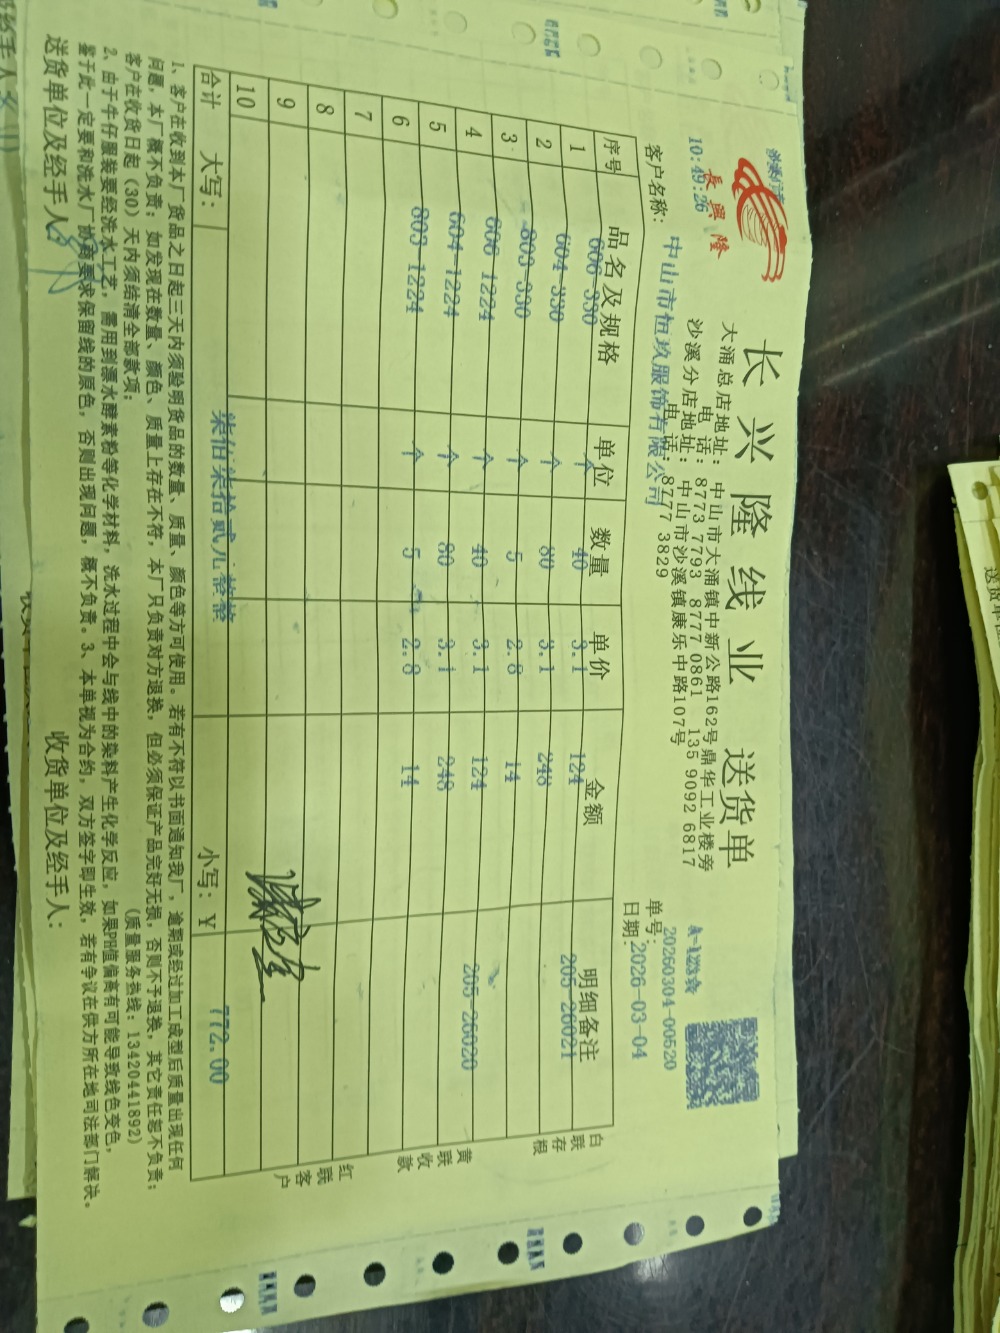 长兴隆线业 送货单
長興隆
10:49:26
大涌总店地址：中山市大涌镇中新公路162号鼎华工业楼旁
电话：8773 7793 8777 0861 135 9092 6817
沙溪分店地址：中山市沙溪镇康乐中路107号
电话：8777 3829
单号：20260304-00520
客户名称：中山市恒玖服饰有限公司
日期：2026-03-04
序号 品名及规格 单位 数量 单价 金额 明细备注
1 606-330 个 40 3.1 124 205-26021
2 604-330 个 80 3.1 248
3 803-330 个 5 2.8 14
4 606-1224 个 40 3.1 124 205-26020
5 604-1224 个 80 3.1 248
6 803-1224 个 5 2.8 14
7
8
9
10
合计 大写：柒佰柒拾贰元整 小写：¥ 772.00
白联存根
黄联收款
红联客户
1、客户在收到本厂货品之日起三天内须验明货品的数量、质量、颜色等方可使用。若有不符以书面通知我厂，逾期或经过加工成型后质量出现任何
问题，本厂概不负责；如发现在数量、颜色、质量上存在不符，本厂只负责对方退换，但必须保证产品完好无损，否则不予退换，其它责任恕不负责；
客户在收货日起（30）天内须结清全部款项； （质量服务热线：13420441892）
2、由于牛仔服装要经洗水工艺，需用到源水酵素粉等化学材料，洗水过程中会与线中的染料产生化学反应，如果PH值偏高有可能导致线色变色，
鉴于此一定要和洗水厂协商要求保留线的原色，否则出现问题，概不负责。3、本单视为合约，双方签字即生效，若有争议在供方所在地司法部门解决。
送货单位及经手人： 收货单位及经手人：